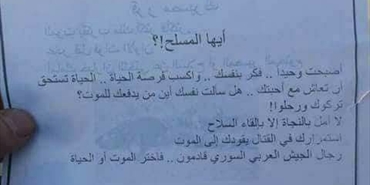 أيها المسلح!؟
أصبحت وحيداً .. فكر بنفسك .. واكسب فرصة الحياة .. الحياة تستحق
أن تعاش مع أحبتك .. هل سألت نفسك أين من يدفعك للموت؟
تركوك ورحلوا!
لا أمل بالنجاة إلا بإلقاء السلاح
استمرارك في القتال يقودك إلى الموت
رجال الجيش العربي السوري قادمون .. فاختر الموت أو الحياة